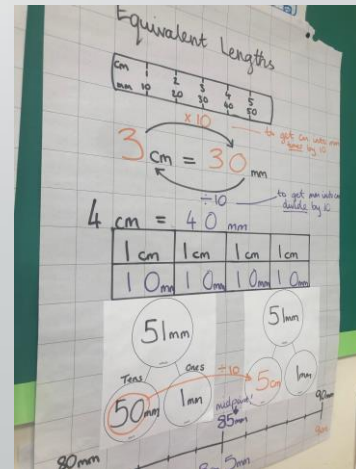 Equivalent Lengths
cm 1 2 3 4 5
mm 10 20 30 40 50
×10
to get cm into mm
by 10
3 cm = 30 mm
÷10
to get mm into cm
divide by 10
4 cm = 40 mm
1cm 1cm 1cm 1cm
10mm 10mm 10mm 10mm
51mm 51mm
Tens Ones ÷10
50mm 1mm 5cm 1mm
midpoint!
85mm 90mm
80mm